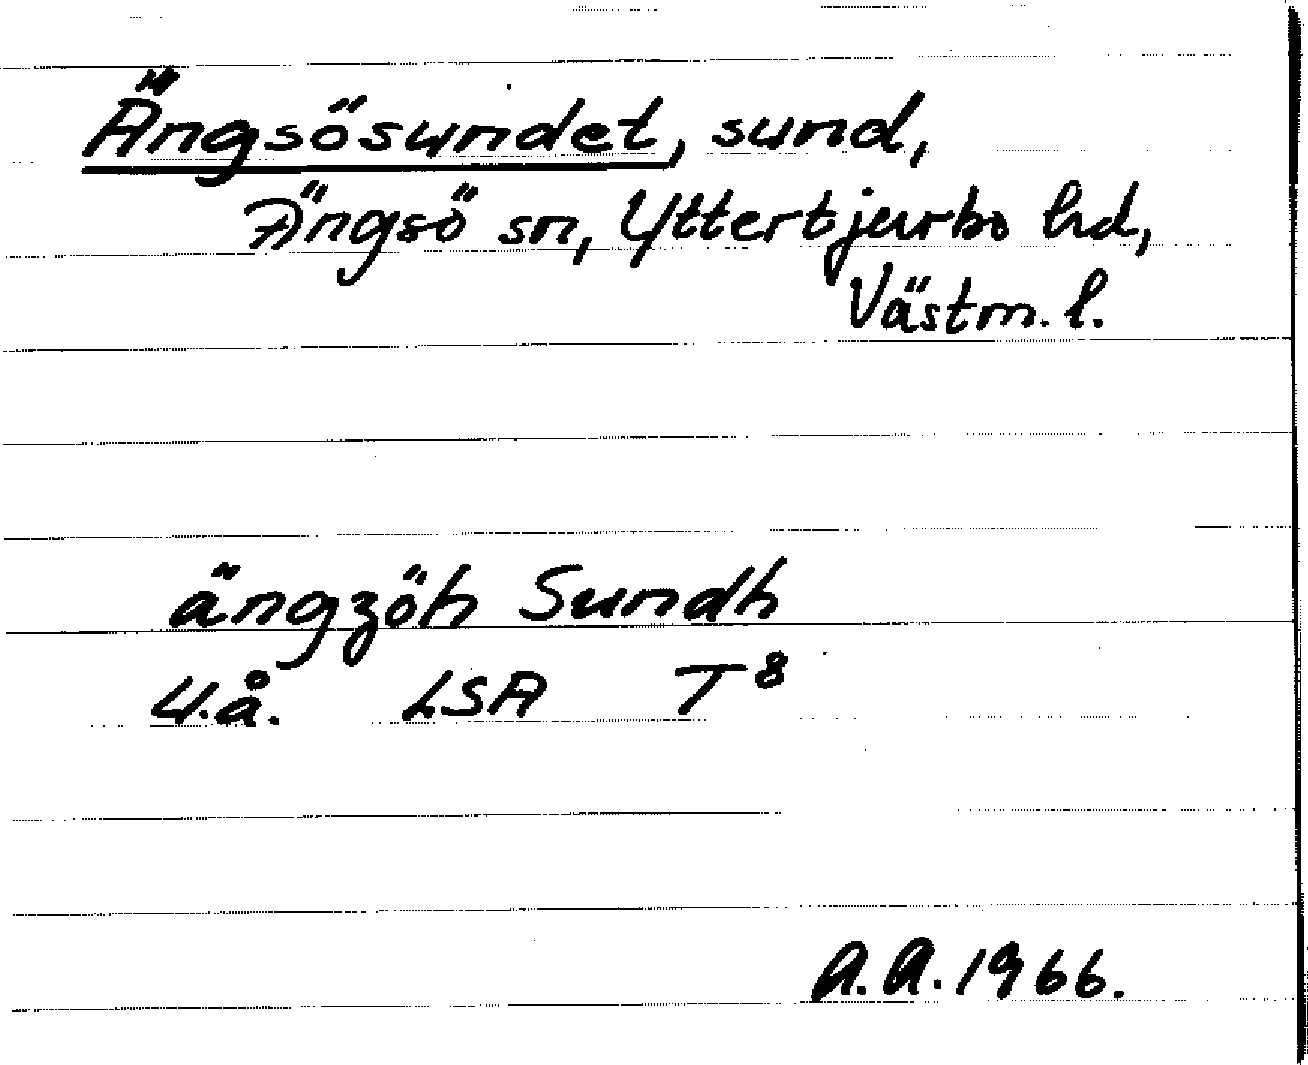 Ängsösundet, sund,
Ängsö sn, Yttertjurbo hd,
Västm. l.
ängzöh Sundh
U.å. LSA T8
A.A. 1966.